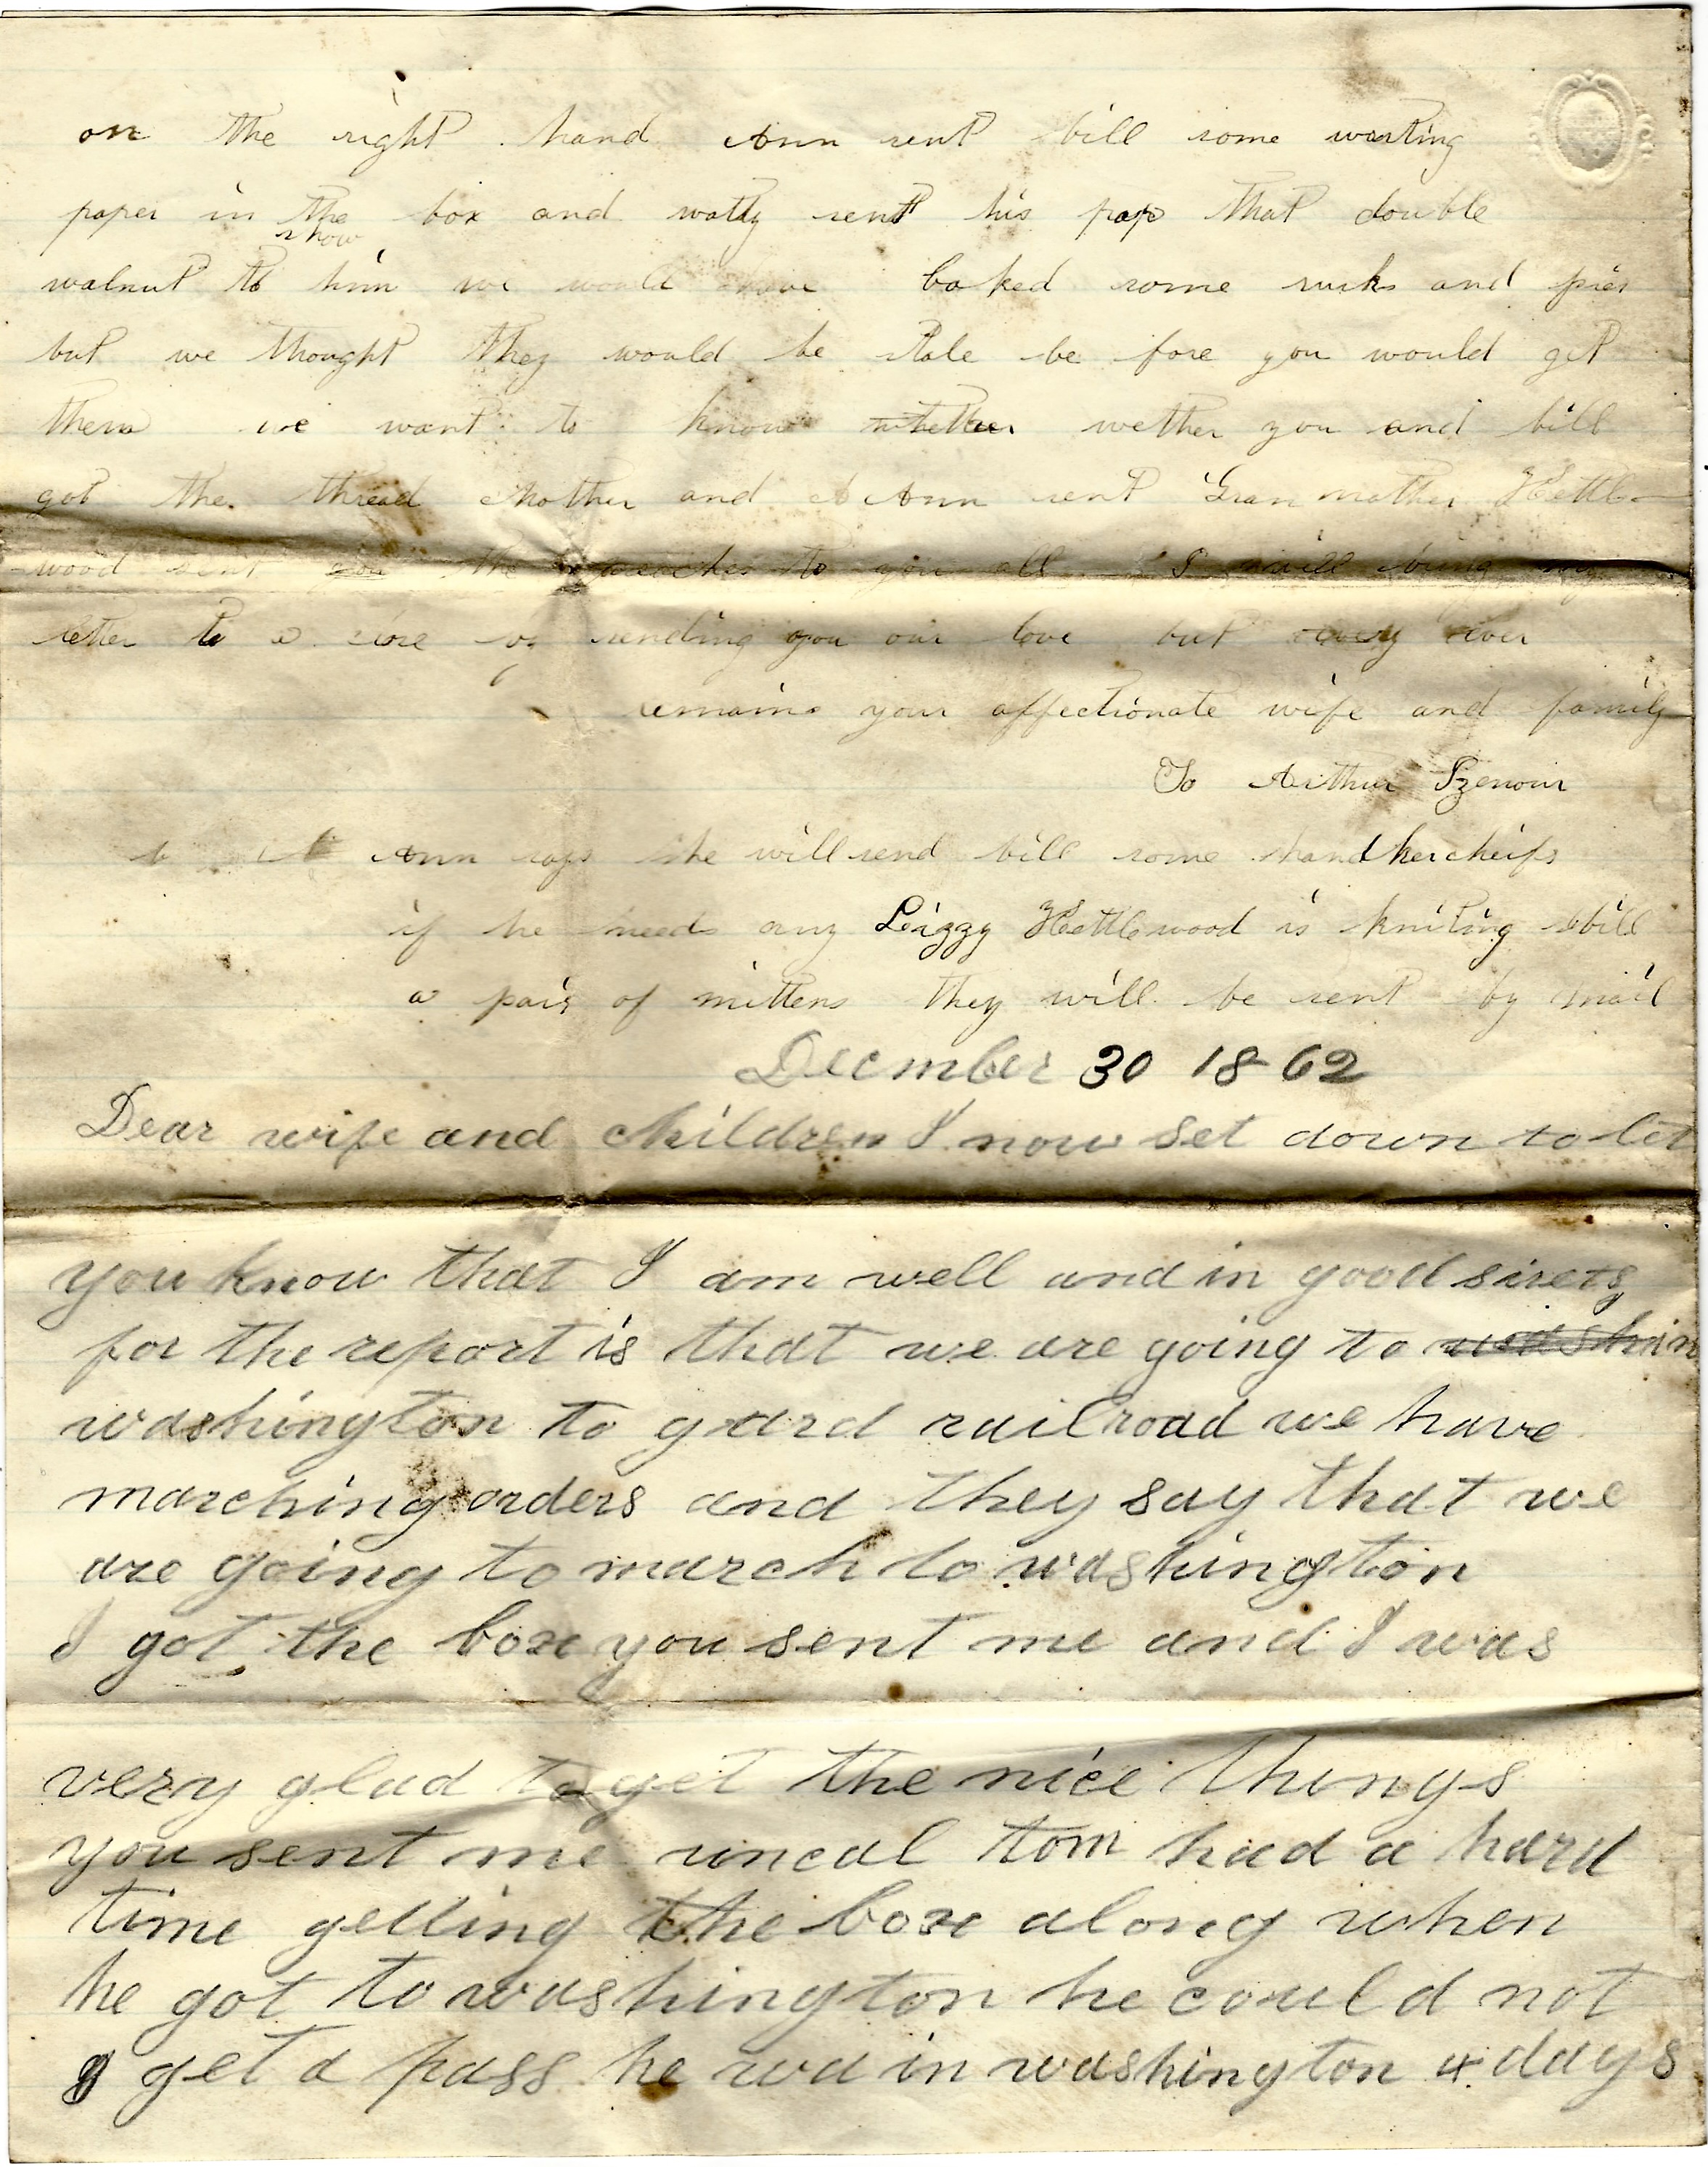 on the right hand Ann sent bill some writing
paper in the box and watty sent his pap that double
show
walnut to him we would have baked some rusks and pies
but we thought they would be stale be fore you would get
them we want to know whether wether you and bill
got the thread Mother and Ann sent Gran mother Kettle
wood sent you the peaches to you all I will bring my
letter to a close by sending you our love but ever
remains your affectionate wife and family
To Arthur
Ann says she will send bill some handkercheifs
if he needs any Lizzy Kettlewood is kniting bill
a pair of mittens they will be sent by mail
Decmber 30 1862
Dear wife and children I now set down to let
you know that I am well and in good
for the report is that we are going to washin
washington to gard railroad we have
marching orders and they say that we
are going to march to washington
I got the box you sent me and I was
very glad to get the nice things
you sent me uncal tom had a hard
time getting the box along when
he got to washington he could not
get a pass he wa in washington 4 days